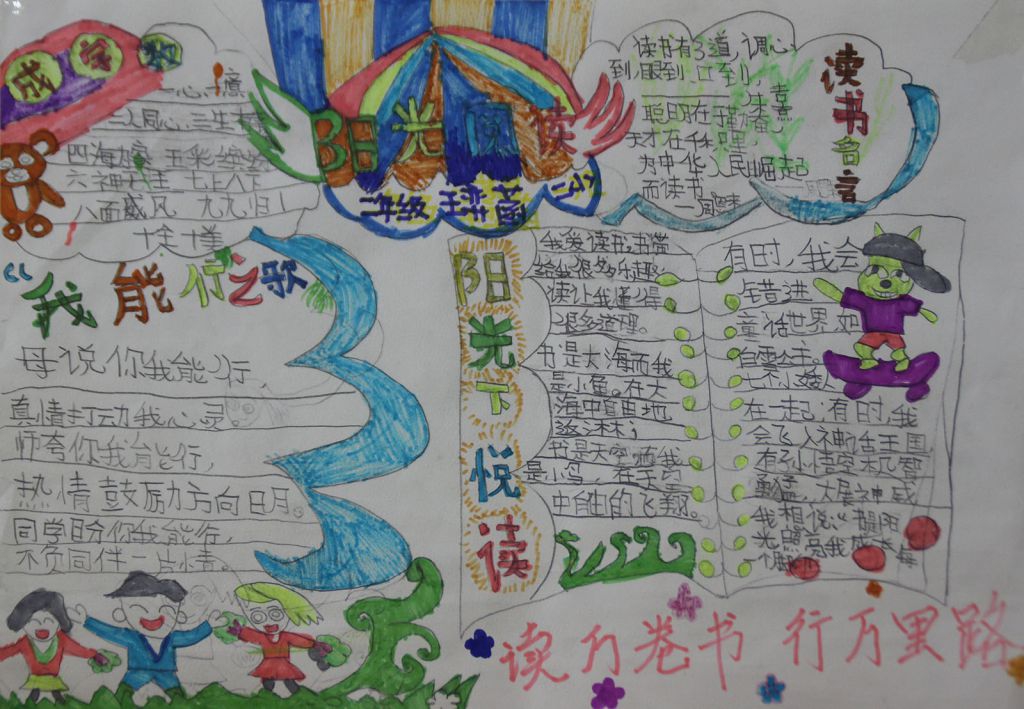 成字
一心一意
二人同心 三生有幸
四海为家 五彩缤纷
六神七主 七上八下
八面威风 九九归一
十全十美
阳光阅读
读书有三道,调心
到,眼到,口到
聪明在于勤奋,
天才在于积累
为中华人民崛起
而读书
读书名言
“我能行之歌
母说你我能行,
真情打动我心灵。
师夸你我能行,
热情鼓励方向明。
同学盼你我能行,
不负同伴一片情。
阳光下悦读
我爱读书,书带
给我很多乐趣,
读让我懂得
很多道理。
书是大海而我
是小鱼。在大
海中自由地
书是天空而我
是小鸟,在天空
中自由的飞翔。
有时,我会
走错进
童话世界,如
白雪公主。
七个小矮人
在一起,有时,我
会飞入神怪王国
有孙悟空机智
勇猛,大展神威
我想悦心书阳
光照亮我成本每
读万卷书 行万里路